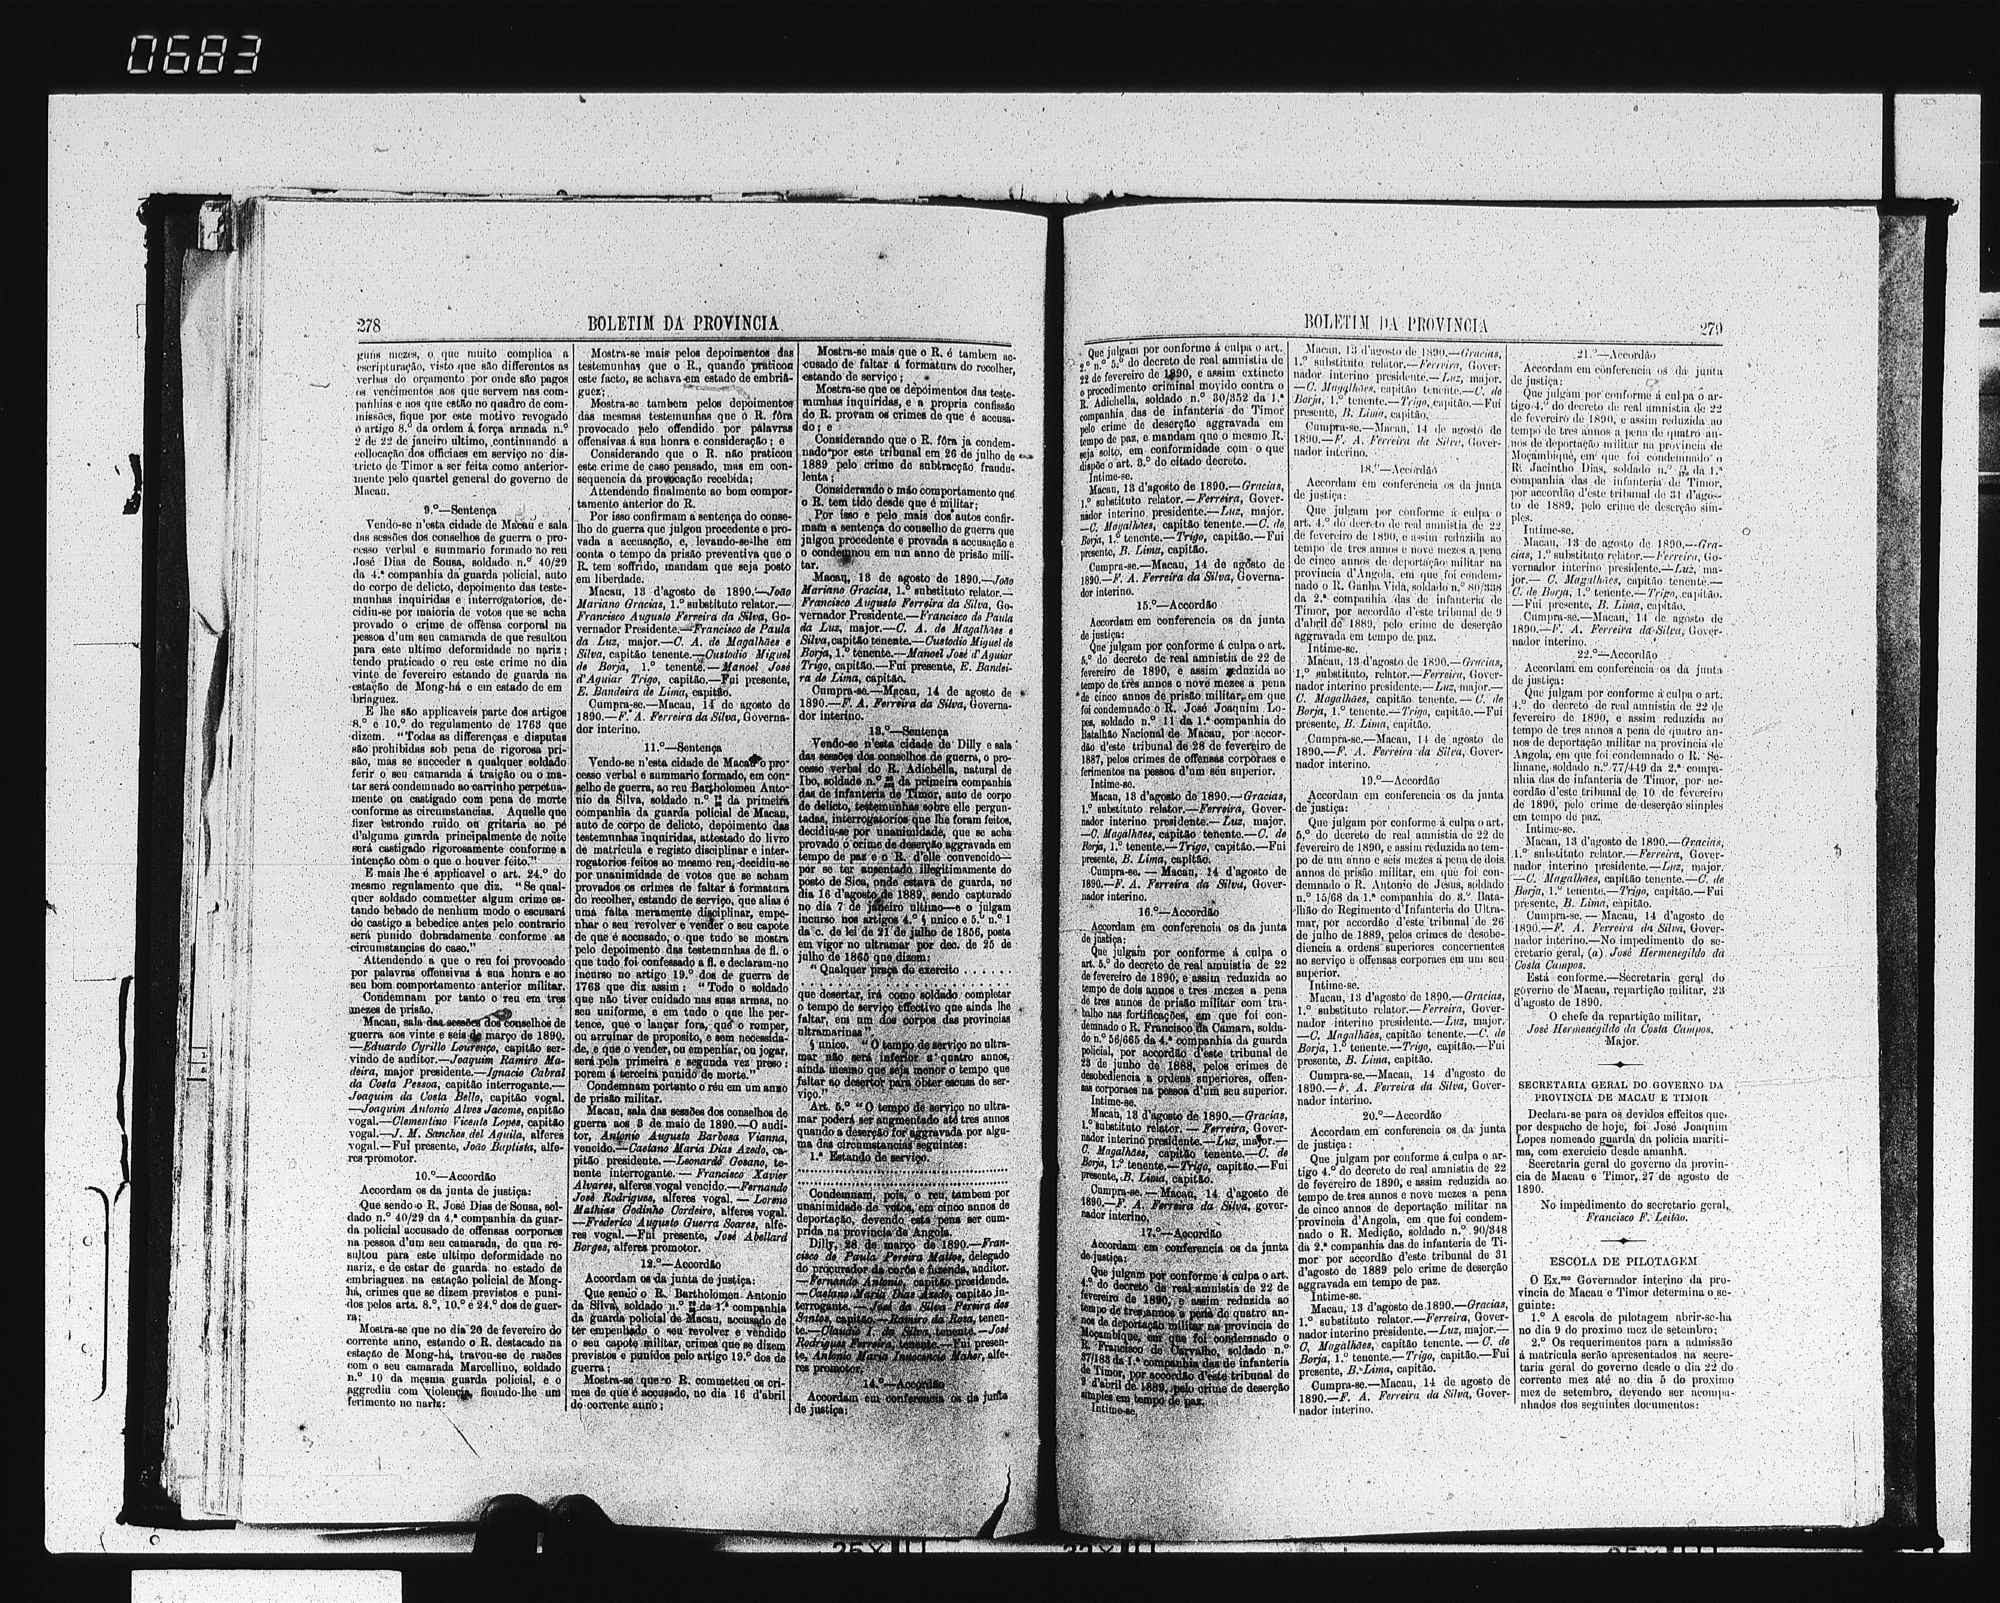 0683
278
BOLETIM DA PROVINCIA
guns mezes, o que muito complica a
escripturação, visto que são differentes as
verbas do orçamento por onde são pagos
os vencimentos aos que servem nas com-
panhias e aos que estão no quadro de com-
missões, fique por este motivo revogado
o artigo 8.º da ordem á força armada n.º
2 de 22 de janeiro ultimo, continuando a
collocação dos officiaes em serviço no dis-
tricto de Timor a ser feita como anterior-
mente pelo quartel general do governo de
Macau.
9.º—Sentença
Vendo-se n'esta cidade de Macau e sala
das sessões dos conselhos de guerra o pro-
cesso verbal e summario formado ao reu
José Dias de Sousa, soldado n.º 40/29
da 4.ª companhia da guarda policial, auto
do corpo de delicto, depoimento das teste-
munhas inquiridas e interrogatorios, de-
cidiu-se por maioria de votos que se acha
provado o crime de offensa corporal na
pessoa d'um seu camarada de que resultou
para este ultimo deformidade no nariz;
tendo praticado o reu este crime no dia
vinte de fevereiro estando de guarda na
estação de Mong-há e em estado de em
briaguez.
E lhe são applicaveis parte dos artigos
8.º e 10.º do regulamento de 1763 que
dizem. "Todas as differenças e disputas
são prohibidas sob pena de rigorosa pri-
são, mas se succeder a qualquer soldado
ferir o seu camarada á traição ou o ma-
tar será condemnado ao carrinho perpetua-
mente ou castigado com pena de morte
conforme as circumstancias. Aquelle que
fizer estrondo ruido ou gritaria ao pé
d'alguma guarda principalmente de noite
será castigado rigorosamente conforme a
intenção com o que o houver feito."
E mais lhe é applicavel o art. 24.º do
mesmo regulamento que diz. "Se qual-
quer soldado commetter algum crime es-
tando bebado de nenhum modo o escusará
do castigo a bebedice antes pelo contrario
será punido dobradamente conforme as
circumstancias do caso."
Attendendo a que o reu foi provocado
por palavras offensivas á sua honra e ao
seu bom comportamento anterior militar.
Condemnam por tanto o reu em tres
mezes de prisão.
Macau, sala das sessões dos conselhos de
guerra aos vinte e seis de março de 1890.
—Eduardo Cyrillo Lourenço, capitão ser-
vindo de auditor.—Joaquim Ramiro Ma-
deira, major presidente.—Ignacio Cabral
da Costa Pessoa, capitão interrogante.—
Joaquim da Costa Bello, capitão vogal.
—Joaquim Antonio Alves Jacome, capitão
vogal.—Clementino Vicente Lopes, capitão
vogal.—J. M. Sanches del Aguila, alferes
vogal.—Fui presente, João Baptista, alfe-
res promotor.
10.º—Accordão
Accordam os da junta de justiça:
Que sendo o R. José Dias de Sousa, sol-
dado n.º 40/29 da 4.ª companhia da guar-
da policial accusado de offensas corporaes
na pessoa d'um seu camarada, do que re-
sultou para este ultimo deformidade no
nariz, e de estar de guarda no estado de
embriaguez na estação policial de Mong-
há, crimes que se dizem previstos e puni-
dos pelos arts. 8.º, 10.º e 24.º dos de guer-
ra;
Mostra-se que no dia 20 de fevereiro do
corrente anno, estando o R. destacado na
estação de Mong-há, travou-se de rasões
com o seu camarada Marcellino, soldado
n.º 10 da mesma guarda policial, e o
aggrediu com violencia, ficando-lhe um
ferimento no nariz;
Mostra-se mais pelos depoimentos das
testemunhas que o R., quando praticou
este facto, se achava em estado de embria-
guez;
Mostra-se tambem pelos depoimentos
das mesmas testemunhas que o R. fôra
provocado pelo offendido por palavras
offensivas á sua honra e consideração; e
Considerando que o R. não praticou
este crime de caso pensado, mas em con-
sequencia da provocação recebida;
Attendendo finalmente ao bom compor-
tamento anterior do R.
Por isso confirmam a sentença do conse-
lho de guerra que julgou procedente e pro-
vada a accusação, e, levando-se-lhe em
conta o tempo da prisão preventiva que o
R. tem soffrido, mandam que seja posto
em liberdade.
Macau, 13 d'agosto de 1890.—João
Mariano Gracias, 1.º substituto relator.—
Francisco Augusto Ferreira da Silva, Go-
vernador Presidente.—Francisco de Paula
da Luz, major.—C. A. de Magalhães e
Silva, capitão tenente.—Custodio Miguel
de Borja, 1.º tenente.—Manoel José
d'Aguiar Trigo, capitão.—Fui presente,
E. Bandeira de Lima, capitão.
Cumpra-se.—Macau, 14 de agosto de
1890.—F. A. Ferreira da Silva, Governa-
dor interino.
11.º—Sentença
Vendo-se n'esta cidade de Macau o pro-
cesso verbal e summario formado, em con-
selho de guerra, ao reu Bartholomeu Anto-
nio da Silva, soldado n.º da primeira
companhia da guarda policial de Macau,
auto de corpo de delicto, depoimento das
testemunhas inquiridas, attestado do livro
de matricula e registo disciplinar e inter-
rogatorios feitos ao mesmo reu, decidiu-se
por unanimidade de votos que se acham
provados os crimes de faltar á formatura
do recolher, estando de serviço, que alias é
uma falta meramente disciplinar, empe-
nhar o seu revolver e vender o seu capote
de que é accusado, o que tudo se mostra
pelo depoimento das testemunhas de fl. o
que tudo foi confessado a fl. e declaram-no
incurso no artigo 19.º dos de guerra de
1763 que diz assim: "Todo o soldado
que não tiver cuidado nas suas armas, no
seu uniforme, e em tudo o que lhe per-
tence, que o lançar fora, que o romper,
ou arruinar de proposito, e sem necessida-
de, e que o vender, ou empenhar, ou jogar,
será pela primeira e segunda vez preso;
porem á terceira punido de morte."
Condemnam portanto o réu em um anno
de prisão militar.
Macau, sala das sessões dos conselhos de
guerra aos 3 de maio de 1890.—O audi-
tor, Antonio Augusto Barbosa Vianna,
vencido.—Caetano Maria Dias Azedo, ca-
pitão presidente.—Leonardo Gosano, te-
nente interrogante.—Francisco Xavier
Alvares, alferes vogal vencido.—Fernando
José Rodrigues, alferes vogal.—Loreno
Mathias Godinho Cordeiro, alferes vogal.
—Frederico Augusto Guerra Soares, alfe-
res vogal.—Fui presente, José Abellard
Borges, alferes promotor.
12.º—Accordão
Accordam os da junta de justiça:
Que sendo o R. Bartholomeu Antonio
da Silva, soldado n.º da 1.ª companhia
da guarda policial de Macau, accusado de
ter empenhado o seu revolver e vendido
o seu capote militar, crimes que se dizem
previstos e punidos pelo artigo 19.º dos de
guerra;
Mostra-se que o R. commetteu os cri-
mes de que é accusado, no dia 16 d'abril
do corrente anno;
Mostra-se mais que o R. é tambem ac-
cusado de faltar á formatura do recolher,
estando de serviço;
Mostra-se que os depoimentos das teste-
munhas inquiridas, e a propria confissão
do R. provam os crimes de que é accusa-
do; e
Considerando que o R. fôra ja condem-
nado por este tribunal em 26 de julho de
1889 pelo crime de subtracção fraudu-
lenta;
Considerando o máo comportamento que
o R. tem tido desde que é militar;
Por isso e pelo mais dos autos confir-
mam a sentença do conselho de guerra que
julgou procedente e provada a accusação e
o condemnou em um anno de prisão mili-
tar.
Macau, 13 de agosto de 1890.—João
Mariano Gracias, 1.º substituto relator.—
Francisco Augusto Ferreira da Silva, Go-
vernador Presidente.—Francisco de Paula
da Luz, major.—C. A. de Magalhães e
Silva, capitão tenente.—Custodio Miguel de
Borja, 1.º tenente.—Manoel José d'Aguiar
Trigo, capitão.—Fui presente, E. Bandei-
ra de Lima, capitão.
Cumpra-se.—Macau, 14 de agosto de
1890.—F. A. Ferreira da Silva, Governa-
dor interino.
13.º—Sentença
Vendo-se n'esta cidade de Dilly e sala
das sessões dos conselhos de guerra, o pro-
cesso verbal do R. Adichella, natural de
Ibo, soldado n.º da primeira companhia
das de infanteria de Timor, auto de corpo
de delicto, testemunhas sobre elle pergun-
tadas, interrogatorios que lhe foram feitos,
decidiu-se por unanimidade, que se acha
provado o crime de deserção aggravada em
tempo de paz e o R. d'elle convencido—
por se ter ausentado illegitimamente do
posto de Sica, onde estava de guarda, no
dia 16 d'agosto de 1889, sendo capturado
no dia 7 de janeiro ultimo—e o julgam
incurso nos artigos 4.º § unico e 5.º n.º 1
da c. de lei de 21 de julho de 1856, posta
em vigor no ultramar por dec. de 25 de
julho de 1865 que dizem:
"Qualquer praça do exercito . . . . . .
. . . . . . . . . . . . . . . . . . . .
que desertar, irá como soldado completar
o tempo de serviço effectivo que ainda lhe
faltar, em um dos corpos das provincias
ultramarinas"
§ unico. "O tempo de serviço no ultra-
mar não será inferior a quatro annos,
ainda mesmo que seja menor o tempo que
faltar ao desertor para obter escusa de ser-
viço."
Art. 5.º "O tempo de serviço no ultra-
mar poderá ser augmentado até tres annos
quando a deserção for aggravada por algu-
ma das circumstancias seguintes:
1.ª Estando de serviço.
. . . . . . . . . . . . . . . . . . . .
. . . . . . . . . . . . . . . . . . . .
Condemnam, pois, o reu, tambem por
unanimidade de votos, em cinco annos de
deportação, devendo esta pena ser cum-
prida na provincia de Angola.
Dilly, 28 de março de 1890.—Fran-
cisco de Paula Pereira Mattos, delegado
do procurador da corôa e fazenda, auditor.
—Fernando Antonio, capitão presidende.
—Caetano Maria Dias Azedo, capitão in-
terrogante.—José da Silva Pereira dos
Santos, capitão.—Ramiro da Rosa, tenen-
te.—Claudio I. da Silva, tenente.—José
Rodrigues Ferreira, tenente.—Fui presen-
te, Antonio Maria Innocencio Maher, alfe-
res promotor.
14.º—Accordão
Accordam em conferencia os da junta
de justiça:
BOLETIM DA PROVINCIA
279
Que julgam por conforme á culpa o art.
2.º n.º 5.º do decreto de real amnistia de
22 de fevereiro de 1890, e assim extincto
o procedimento criminal movido contra o
R. Adichella, soldado n.º 30/352 da 1.ª
companhia das de infanteria de Timor
pelo crime de deserção aggravada em
tempo de paz, e mandam que o mesmo R.
seja solto, em conformidade com o que
dispõe o art. 3.º do citado decreto.
Intime-se.
Macau, 13 d'agosto de 1890.—Gracias,
1.º substituto relator.—Ferreira, Gover-
nador interino presidente.—Luz, major.
—C. Magalhães, capitão tenente.—C. de
Borja, 1.º tenente.—Trigo, capitão.—Fui
presente, B. Lima, capitão.
Cumpra-se.—Macau, 14 de agosto de
1890.—F. A. Ferreira da Silva, Governa-
dor interino.
15.º—Accordão
Accordam em conferencia os da junta
de justiça:
Que julgam por conforme á culpa o art.
5.º do decreto de real amnistia de 22 de
fevereiro de 1890, e assim reduzida ao
tempo de três annos o nove mezes a pena
de cinco annos de prisão militar, em que
foi condemnado o R. José Joaquim Lo-
pes, soldado n.º 11 da 1.ª companhia do
Batalhão Nacional de Macau, por accor-
dão d'este tribunal de 28 de fevereiro de
1887, pelos crimes de offensas corporaes e
ferimentos na pessoa d'um seu superior.
Intime-se.
Macau, 13 d'agosto de 1890.—Gracias,
1.º substituto relator.—Ferreira, Gover-
nador interino presidente.—Luz, major.
—C. Magalhães, capitão tenente.—C. de
Borja, 1.º tenente.—Trigo, capitão.—Fui
presente, B. Lima, capitão.
Cumpra-se.—Macau, 14 d'agosto de
1890.—F. A. Ferreira da Silva, Gover-
nador interino.
16.º—Accordão
Accordam em conferencia os da junta
de justiça:
Que julgam por conforme á culpa o
art. 5.º do decreto de real amnistia de 22
de fevereiro de 1890, e assim reduzida ao
tempo de dois annos e tres mezes a pena
de tres annos de prisão militar com tra-
balho nas fortificações, em que foi con-
demnado o R. Francisco da Camara, solda-
do n.º 56/665 da 4.ª companhia da guarda
policial, por accordão d'este tribunal de
23 de junho de 1888, pelos crimes de
desobediencia a ordens superiores, offen-
sas corporaes na pessoa d'um seu superior.
Intime-se.
Macau, 13 d'agosto de 1890.—Gracias,
1.º substituto relator.—Ferreira, Gover-
nador interino presidente.—Luz, major.—
C. Magalhães, capitão tenente.—C. de
Borja, 1.º tenente.—Trigo, capitão.—Fui
presente, B. Lima, capitão.
Cumpra-se.—Macau, 14 d'agosto de
1890.—F. A. Ferreira da Silva, gover-
nador interino.
17.º—Accordão
Accordam em conferencia os da junta
de justiça:
Que julgam por conforme á culpa o art.
4.º do decreto de real amnistia de 22 de
fevereiro de 1890, e assim reduzida ao
tempo de tres annos a pena de quatro an-
nos de deportação militar na provincia de
Moçambique, em que foi condemnado o
R. Francisco de Carvalho, soldado n.º
37/183 da 1.ª companhia das de infanteria
de Timor, por accordão d'este tribunal de
9 d'abril de 1889, pelo crime de deserção
simples em tempo de paz.
Intime-se.
Macau, 13 d'agosto de 1890.—Gracias,
1.º substituto relator.—Ferreira, Gover-
nador interino presidente.—Luz, major.
—C. Magalhães, capitão tenente.—C. de
Borja, 1.º tenente.—Trigo, capitão.—Fui
presente, B. Lima, capitão.
Cumpra-se.—Macau, 14 de agosto de
1890.—F. A. Ferreira da Silva, Gover-
nador interino.
18.º—Accordão
Accordam em conferencia os da junta
de justiça:
Que julgam por conforme á culpa o
art. 4.º do decreto de real amnistia de 22
de fevereiro de 1890, e assim reduzida ao
tempo de tres annos e nove mezes a pena
de cinco annos de deportação militar na
provincia d'Angola, em que foi condem-
nado o R. Ganha Vida, soldado n.º 80/338
da 2.ª companhia das de infanteria de
Timor, por accordão d'este tribunal de 9
d'abril de 1889, pelo crime de deserção
aggravada em tempo de paz.
Intime-se.
Macau, 13 d'agosto de 1890.—Gracias,
1.º substituto, relator.—Ferreira, Gover-
nador interino presidente.—Luz, major.—
C. Magalhães, capitão tenente.—C. de
Borja, 1.º tenente.—Trigo, capitão.—Fui
presente, B. Lima, capitão.
Cumpra-se.—Macau, 14 de agosto de
1890.—F. A. Ferreira da Silva, Gover-
nador interino.
19.º—Accordão
Accordam em conferencia os da junta
de justiça:
Que julgam por conforme á culpa o art.
5.º do decreto de real amnistia de 22 de
fevereiro de 1890, e assim reduzida ao tem-
po de um anno e seis mezes a pena de dois
annos de prisão militar, em que foi con-
demnado o R. Antonio de Jesus, soldado
n.º 15/68 da 1.ª companhia do 3.º Bata-
lhão do Regimento d'Infanteria do Ultra-
mar, por accordão d'este tribunal de 26
de julho de 1889, pelos crimes de desobe-
diencia a ordens superiores concernentes
ao serviço e offensas corporaes em um seu
superior.
Intime-se.
Macau, 13 d'agosto de 1890.—Gracias,
1.º substituto relator.—Ferreira, Gover-
nador interino presidente.—Luz, major.
—C. Magalhães, capitão tenente.—C. de
Borja, 1.º tenente.—Trigo, capitão.—Fui
presente, B. Lima, capitão.
Cumpra-se.—Macau, 14 d'agosto de
1890.—F. A. Ferreira da Silva, Gover-
nador interino.
20.º—Accordão
Accordam em conferencia os da junta
de justiça:
Que julgam por conforme á culpa o ar-
tigo 4.º do decreto de real amnistia de 22
de fevereiro de 1890, e assim reduzida ao
tempo de tres annos e nove mezes a pena
de cinco annos de deportação militar na
provincia d'Angola, em que foi condem-
nado o R. Medição, soldado n.º 90/348
da 2.ª companhia das de infanteria de Ti-
mor por accordão d'este tribunal de 31
d'agosto de 1889 pelo crime de deserção
aggravada em tempo de paz.
Intime-se.
Macau, 13 d'agosto de 1890.—Gracias,
1.º substituto relator.—Ferreira, Gover-
nador interino presidente.—Luz, major.—
C. Magalhães, capitão tenente.—C. de
Borja, 1.º tenente.—Trigo, capitão.—Fui
presente, B. Lima, capitão.
Cumpra-se.—Macau, 14 de agosto de
1890.—F. A. Ferreira da Silva, Gover-
nador interino.
21.º—Accordão
Accordam em conferencia os da junta
de justiça:
Que julgam por conforme á culpa o ar-
tigo 4.º do decreto de real amnistia de 22
de fevereiro de 1890, e assim reduzida ao
tempo de tres annos a pena de quatro an-
nos de deportação militar na provincia de
Moçambique, em que foi condemnado o
R. Jacintho Dias, soldado n.º da 1.ª
companhia das de infanteria de Timor,
por accordão d'este tribunal de 31 d'agos-
to de 1889, pelo crime de deserção sim-
ples.
Intime-se.
Macau, 13 de agosto de 1890.—Gra-
cias, 1.º substituto relator.—Ferreira, Go-
vernador interino presidente.—Luz, ma-
jor.—C. Magalhães, capitão tenente.—
C. de Borja, 1.º tenente.—Trigo, capitão.
—Fui presente, B. Lima, capitão.
Cumpra-se.—Macau, 14 de agosto de
1890.—F. A. Ferreira da Silva, Gover-
nador interino.
22.º—Accordão
Accordam em conferencia os da junta
de justiça:
Que julgam por conforme á culpa o art.
4.º do decreto de real amnistia de 22 de
fevereiro de 1890, e assim reduzida ao
tempo de tres annos a pena de quatro an-
nos de deportação militar na provincia de
Angola, em que foi condemnado o R. Se-
limane, soldado n.º 77/449 da 2.ª compa-
nhia das de infanteria de Timor, por ac-
cordão d'este tribunal de 10 de fevereiro
de 1890, pelo crime de deserção simples
em tempo de paz.
Intime-se.
Macau, 13 d'agosto de 1890.—Gracias,
1.º substituto relator.—Ferreira, Gover-
nador interino presidente.—Luz, major.
—C. Magalhães, capitão tenente.—C. de
Borja, 1.º tenente.—Trigo, capitão.—Fui
presente, B. Lima, capitão.
Cumpra-se.—Macau, 14 d'agosto de
1890.—F. A. Ferreira da Silva, Gover-
nador interino.—No impedimento do se-
cretario geral, (a) José Hermenegildo da
Costa Campos.
Está conforme.—Secretaria geral do
governo de Macau, repartição militar, 23
d'agosto de 1890.
O chefe da repartição militar,
José Hermenegildo da Costa Campos.
Major.
SECRETARIA GERAL DO GOVERNO DA
PROVINCIA DE MACAU E TIMOR
Declara-se para os devidos effeitos que,
por despacho de hoje, foi José Joaquim
Lopes nomeado guarda da policia mariti-
ma, com exercicio desde amanhã.
Secretaria geral do governo da provin-
cia de Macau e Timor, 27 de agosto de
1890.
No impedimento do secretario geral,
Francisco F. Leitão.
ESCOLA DE PILOTAGEM
O Ex.mo Governador interino da pro-
vincia de Macau e Timor determina o se-
guinte:
1.º A escola de pilotagem abrir-se-ha
no dia 9 do proximo mez de setembro;
2.º Os requerimentos para a admissão
á matricula serão apresentados na secre-
taria geral do governo desde o dia 22 do
corrente mez até ao dia 5 do proximo
mez de setembro, devendo ser acompa-
nhados dos seguintes documentos: